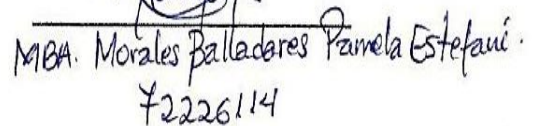 MBA. Morales Balladares Pamela Estefani.
72226114